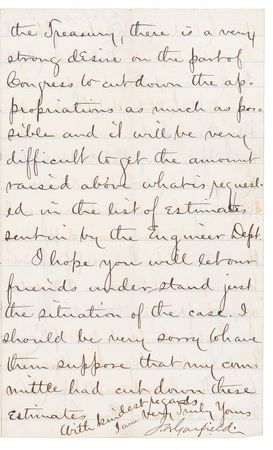 the Treasury, there is a very
strong desire on the part of
Congress to cut down the ap-
propriations as much as pos-
sible and it will be very
difficult to get the amount
raised above what is request-
ed in the list of Estimates
sent in by the Engineer Dept.
I hope you will let our
friends understand just
the situation of the case. I
should be very sorry to have
them suppose that my com-
mittee had cut down these
Estimates
With kindest regards,
I am Very Truly Yours
J. A. Garfield